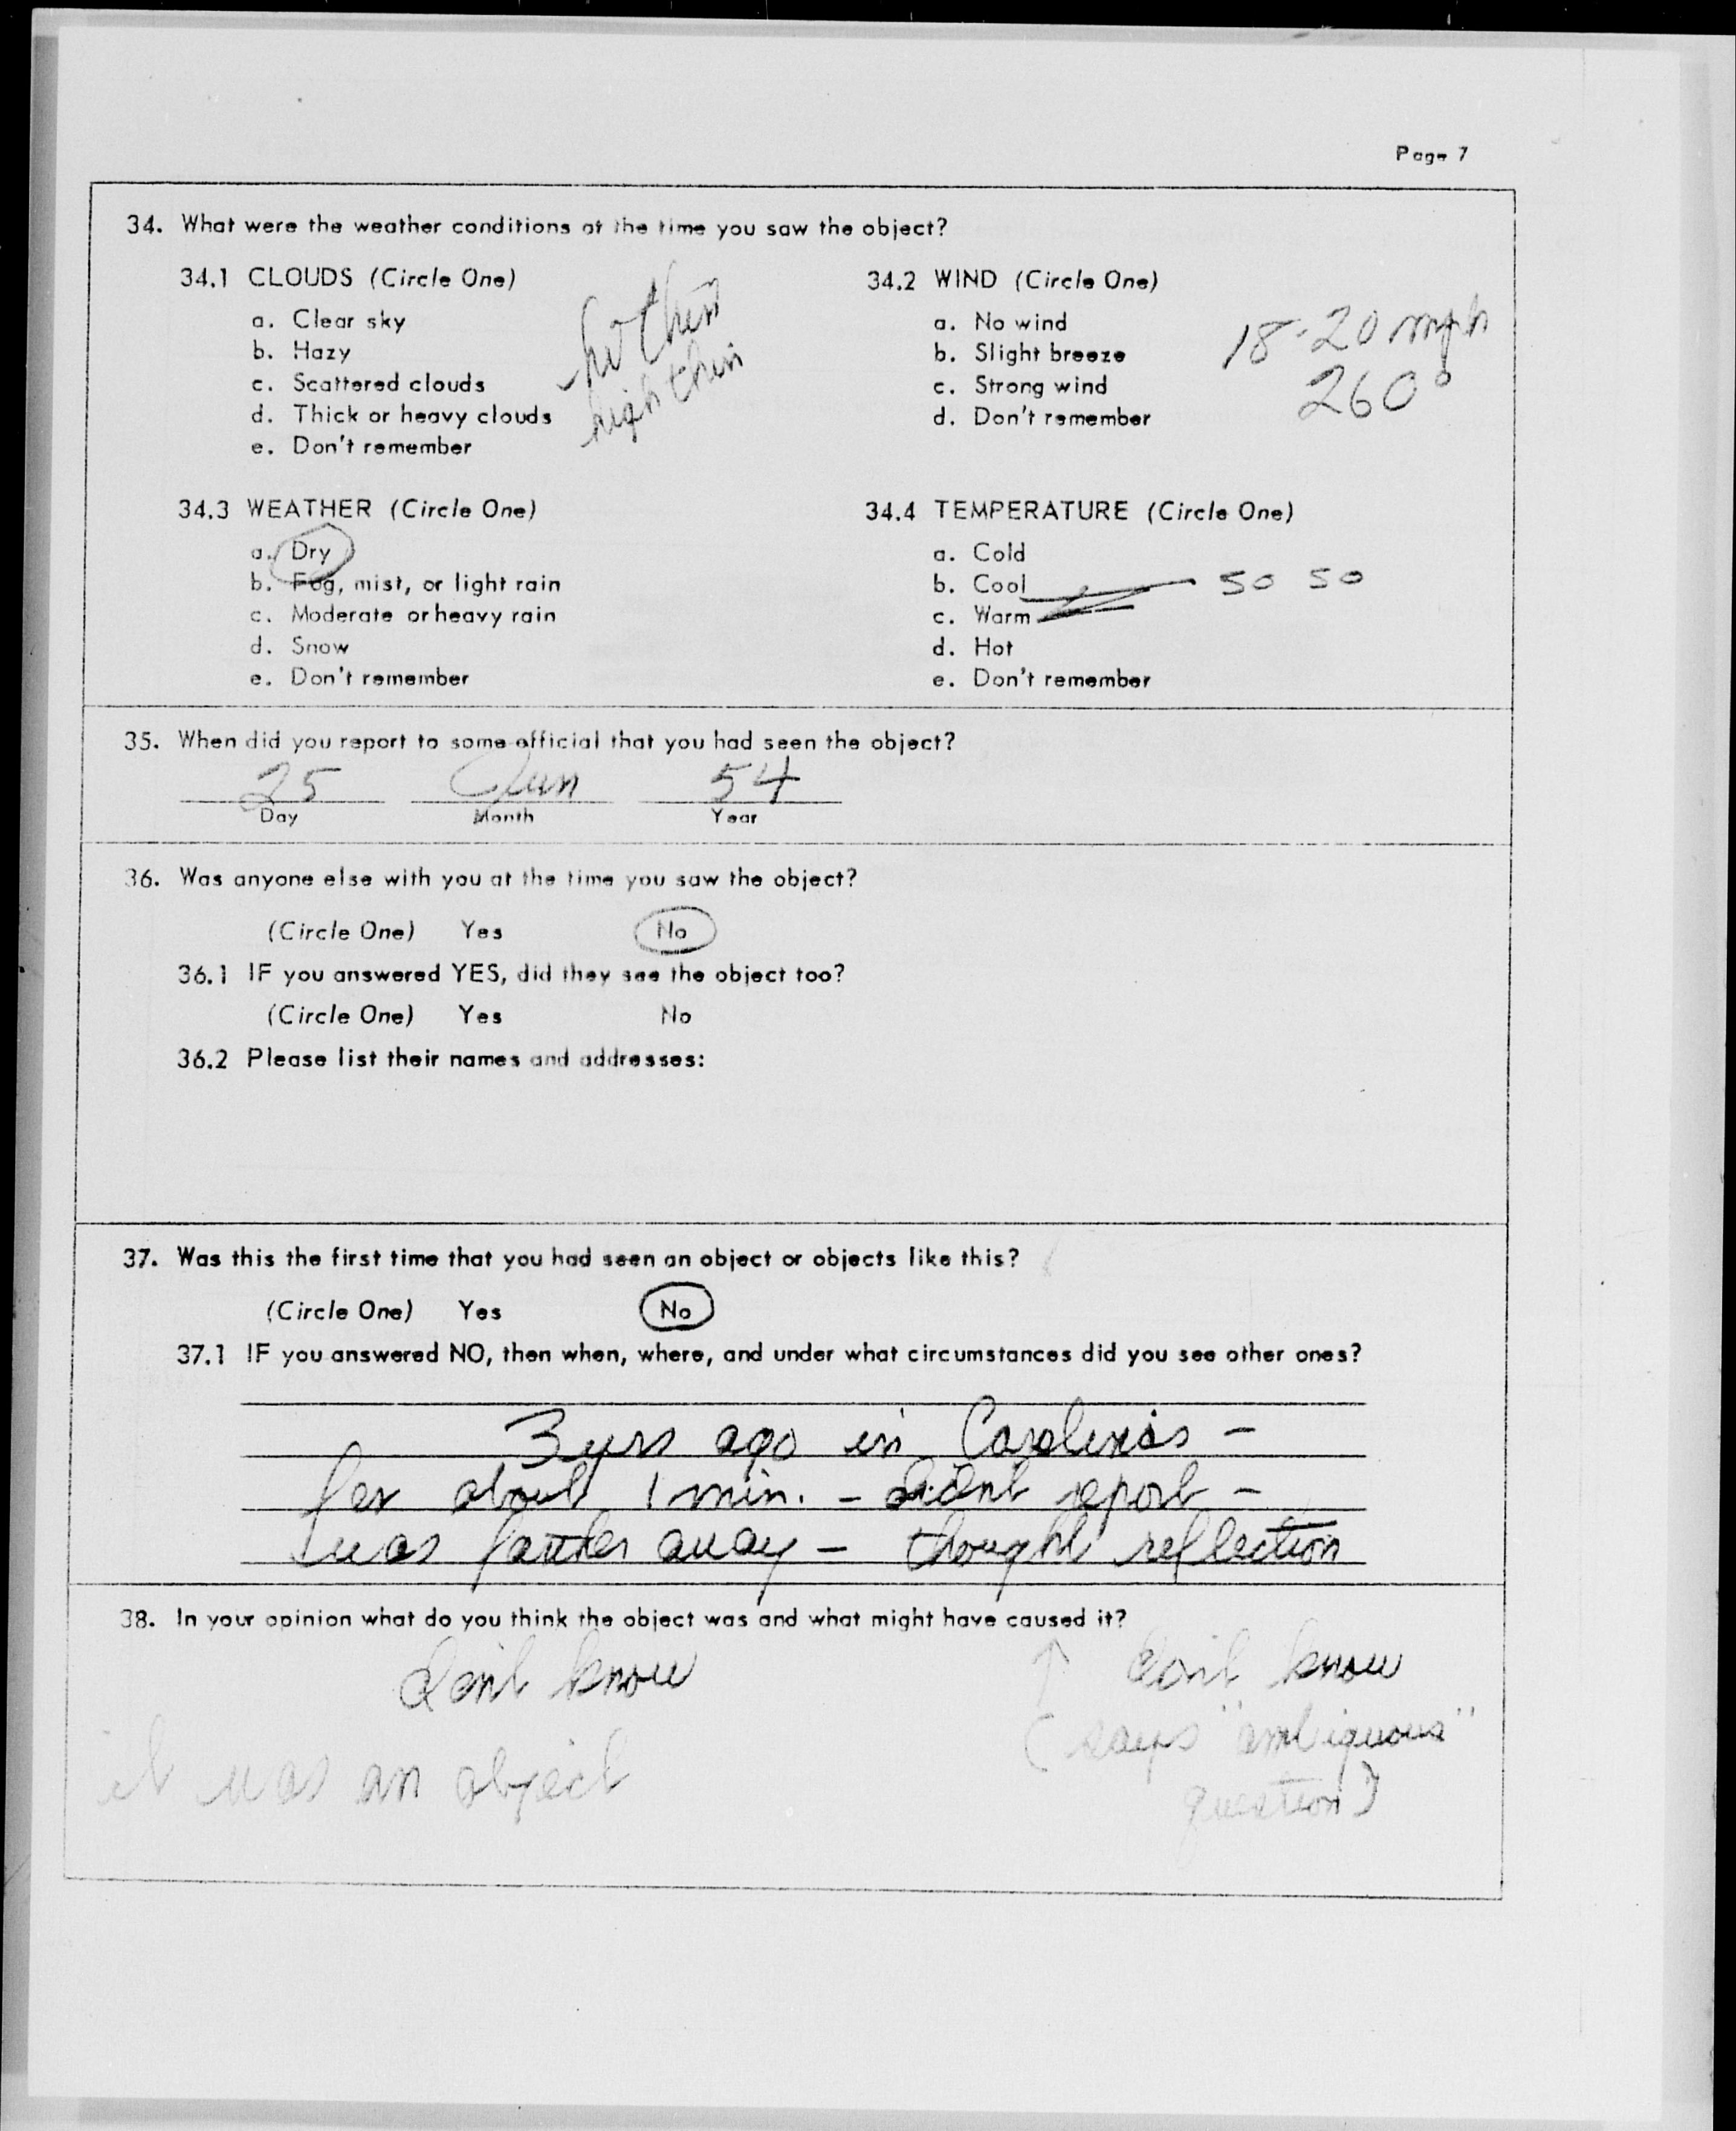 Page 7
34. What were the weather conditions at the time you saw the object?
34.1 CLOUDS (Circle One)
a. Clear sky
b. Hazy
c. Scattered clouds
d. Thick or heavy clouds
e. Don't remember
thin
high thin
34.2 WIND (Circle One)
a. No wind
b. Slight breeze
c. Strong wind
d. Don't remember
18-20 mph
260°
34.3 WEATHER (Circle One)
a. Dry
b. Fog, mist, or light rain
c. Moderate or heavy rain
d. Snow
e. Don't remember
34.4 TEMPERATURE (Circle One)
a. Cold
b. Cool 50 50
c. Warm
d. Hot
e. Don't remember
35. When did you report to some official that you had seen the object?
25 Jun 54
Day Month Year
36. Was anyone else with you at the time you saw the object?
(Circle One) Yes No
36.1 IF you answered YES, did they see the object too?
(Circle One) Yes No
36.2 Please list their names and addresses:
37. Was this the first time that you had seen an object or objects like this?
(Circle One) Yes No
37.1 IF you answered NO, then when, where, and under what circumstances did you see other ones?
3 yrs ago in Carolinas -
for about 1 min. - didnt report -
was farther away - thought reflection
38. In your opinion what do you think the object was and what might have caused it?
dont know ↑ dont know
(says "ambiguous"
it was an object
question)